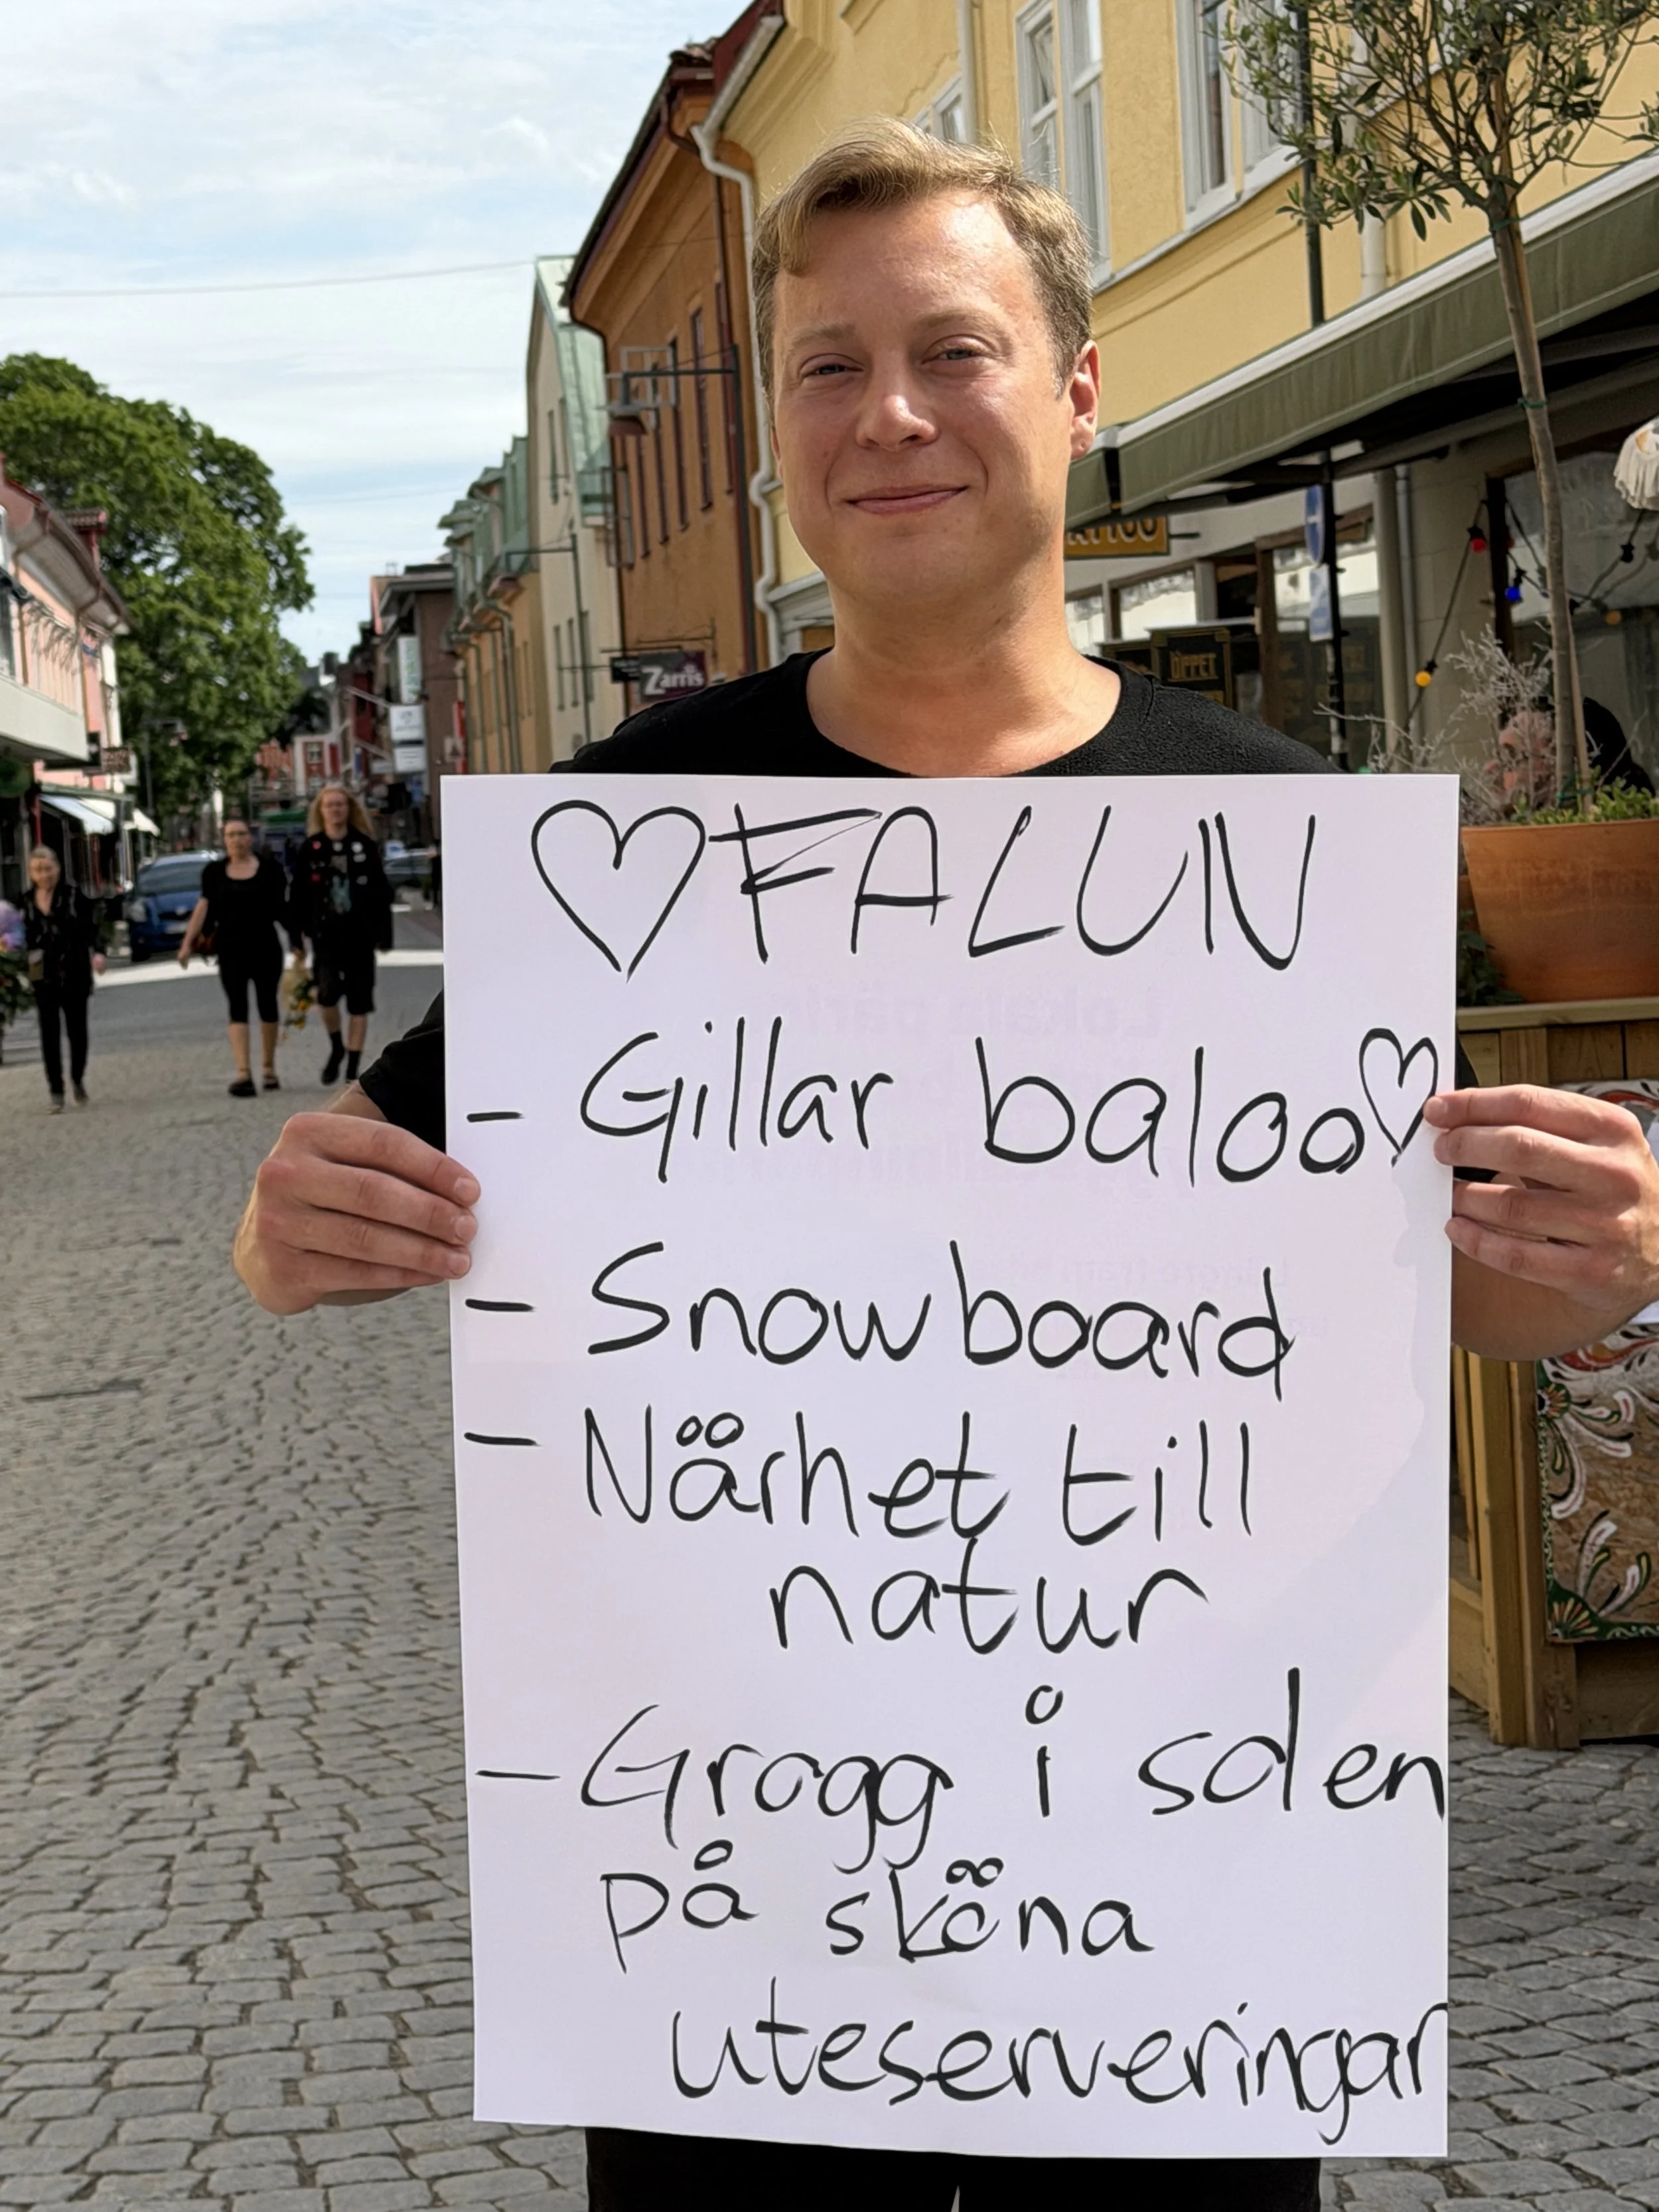 ♡ FALUN
- Gillar baloo♡
- Snowboard
- Närhet till
natur
- Grogg i solen
på sköna
uteserveringar
Zarris
ÖPPET